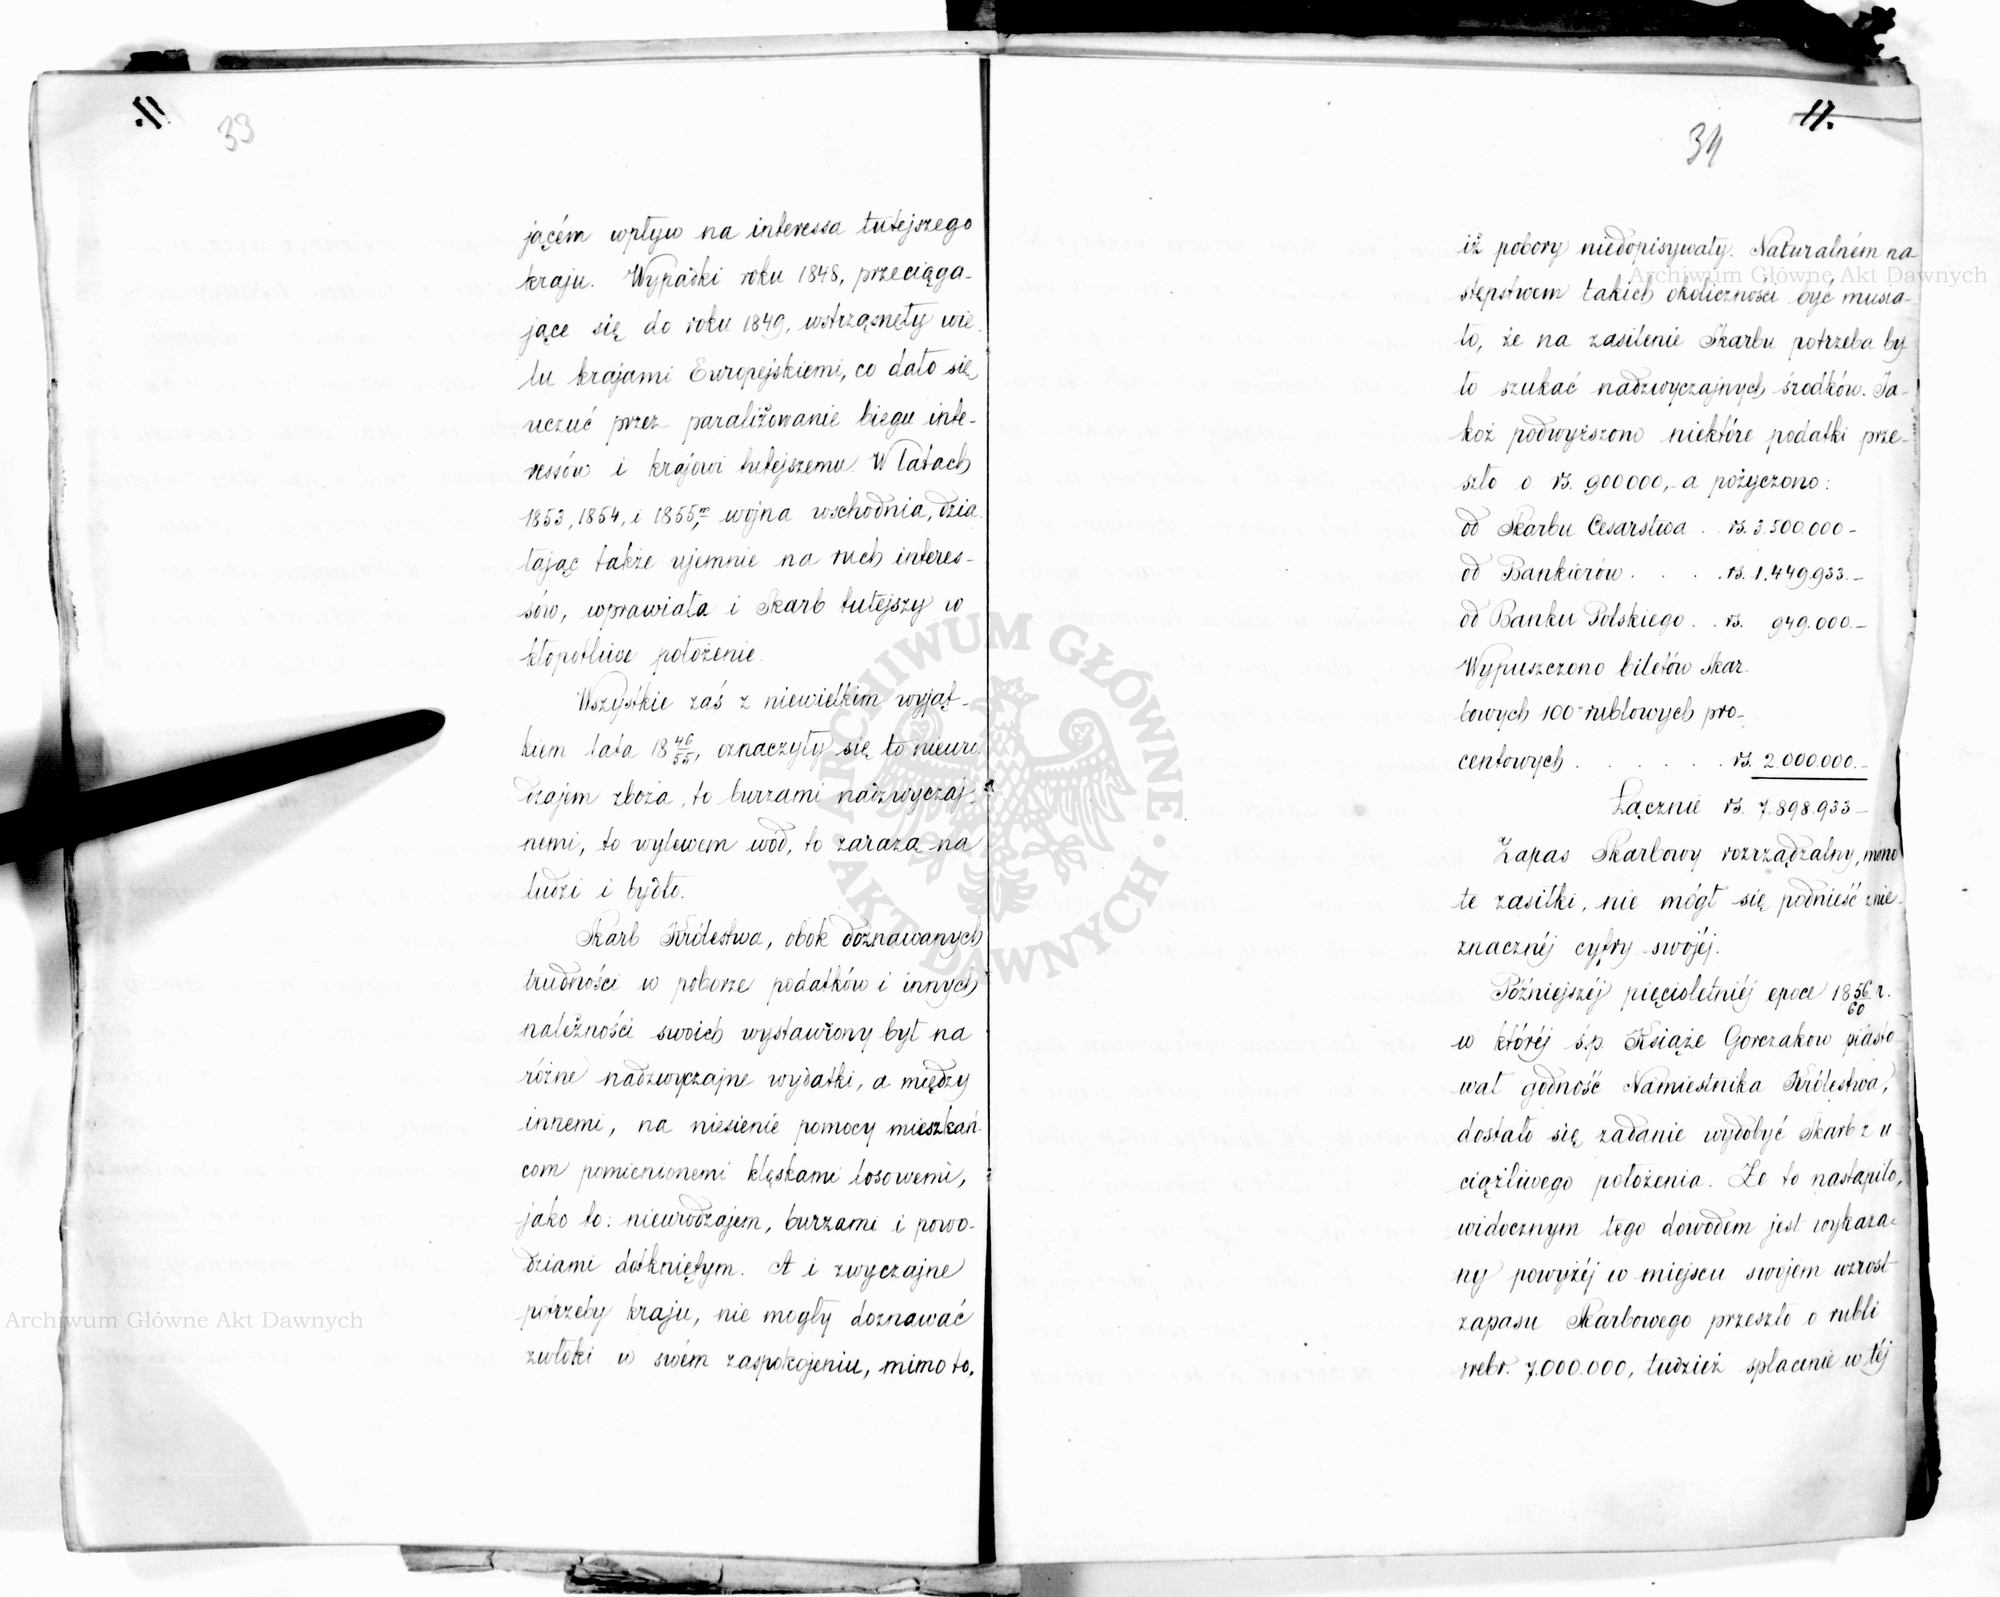 33
jącém wpływ na interessa tutejszego
kraju. Wypadki roku 1848, przeciąga-
jące się do roku 1849, wstrząsnęły wie-
lu krajami Europejskiemi, co dało się
uczuć przez paraliżowanie biegu inte-
ressów i krajowi tutejszemu. W latach
1853, 1854, i 1855,m wojna wschodnia, dzia-
łając także ujemnie na ruch interes-
sów, wprawiała i Skarb tutejszy w
kłopotliwe położenie.
Wszystkie zaś z niewielkim wyjąt-
kiem lata 18 46/55, oznaczyły się to nieuro-
dzajem zboża, to burzami nadzwyczaj-
nemi, to wylewem wód, to zarazą na
ludzi i bydło.
Skarb Królestwa, obok doznawanych
trudności w poborze podatków i innych
należności swoich wystawiony był na
różne nadzwyczajne wydatki, a między
innemi, na niesienie pomocy mieszkań-
com pomienionemi klęskami losowemi,
jako to: nieurodzajem, burzami i powo-
dziami dotkniętym. A i zwyczajne
potrzeby kraju, nie mogły doznawać
zwłoki w swém zaspokojeniu, mimo to,
11.
34
iż pobory niedopisywały. Naturalném na-
stępstwem takich okoliczności być musia-
ło, że na zasilenie Skarbu potrzeba by-
ło szukać nadzwyczajnych środków. Ja-
koż podwyższono niektóre podatki prze-
szło o rs. 900000,- a pożyczono:
od Skarbu Cesarstwa . . rs. 3.500.000-
od Bankierów . . . . rs. 1.449.933.-
od Banku Polskiego . . rs. 949.000.-
Wypuszczono biletów Skar-
bowych 100-rublowych pro-
centowych . . . . . . rs. 2.000.000.-
Łącznie rs. 7.898.933-
Zapas Skarbowy rozrządzalny, mimo
te zasiłki, nie mógł się podnieść z nie-
znacznéj cyfry swojéj.
Późniejszéj pięcioletniéj epoce 18 56/60 r.
w któréj ś.p. Książe Gorczakow piasto-
wał godność Namiestnika Królestwa,
dostało się zadanie wydobyć Skarb z u-
ciążliwego położenia. Że to nastąpiło,
widocznym tego dowodem jest wykaza-
ny powyżéj w miejscu swojem wzrost
zapasu Skarbowego przeszło o rubli
srebr. 7.000.000, tudzież spłacenie w téj
Archiwum Główne Akt Dawnych
Archiwum Główne Akt Dawnych
ARCHIWUM GŁÓWNE · AKT DAWNYCH ·